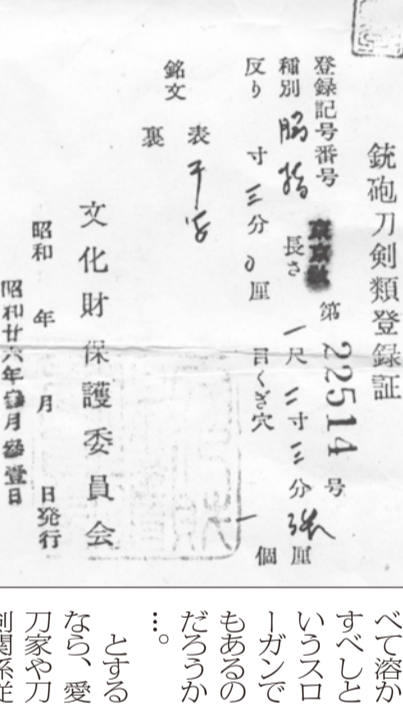 銃砲刀剣類登録証
登録記号番号 第22514号
種別 脇指 長さ 一尺 二寸 三分 厘
反り 寸 三分 0厘 目くぎ穴 一個
銘文 表
裏
文化財保護委員会
昭和 年 月 日発行
昭和廿六年 月 日
べて溶か
すべしと
いうスロ
ーガンで
もあるの
だろうか
…。
とする
なら、愛
刀家や刀
剣関係従